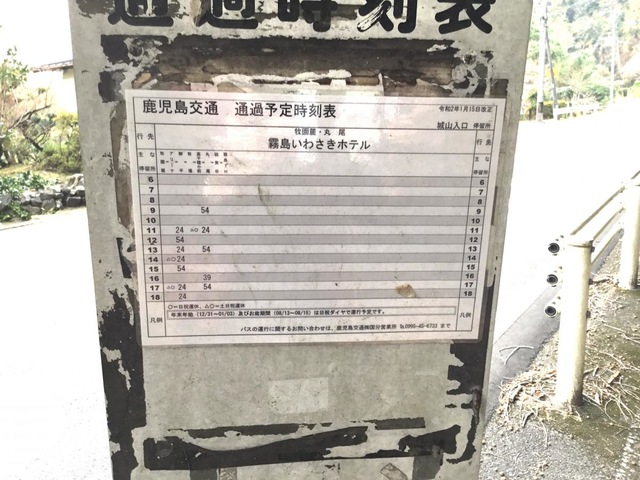 通過時刻表
鹿児島交通 通過予定時刻表
令和2年1月15日改正
城山入口 停留所
行先 牧園麓・丸尾 行先
霧島いわさきホテル
主な停留所 主な停留所
6 6
7 7
8 8
9 54 9
10 10
11 24 △○ 24 11
12 54 12
13 24 54 13
14 △○24 14
15 54 15
16 39 16
17 24 △○ 54 17
18 24 18
凡例 ○=日祝運休、△○=土日祝運休 凡例
年末年始 (12/31~01/03) 及びお盆期間 (08/13~08/15) は日祝ダイヤで運行予定です。
バスの運行に関するお問い合わせは、鹿児島交通㈱国分営業所 ℡0995-45-6733 まで